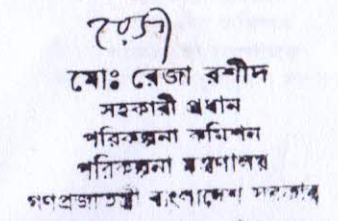 মোঃ রেজা রশীদ
সহকারী প্রধান
পরিকল্পনা কমিশন
পরিকল্পনা মন্ত্রণালয়
গণপ্রজাতন্ত্রী বাংলাদেশ সরকার